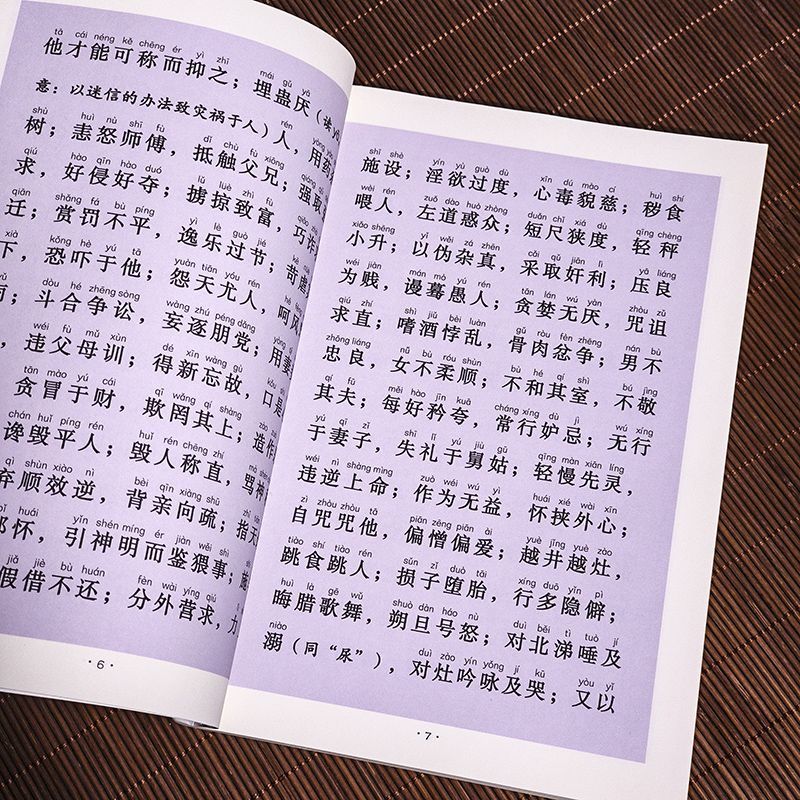 tā cái néng kě chēng ér yì zhī
他才能可称而抑之；埋蛊厌（读
mái gǔ yā
意：以迷信的办法致灾祸于人）人，用药
rén yòng yào
shù huì nù shī fù dǐ chù fù xiōng
树；恚怒师傅，抵触父兄；强取
qiú hào qīn hào duó lǔ lüè zhì fù
求，好侵好夺；掳掠致富，巧诈
qiān shǎng fá bù píng yì lè guò jié
迁；赏罚不平，逸乐过节；苛虐
kǒng hè yú tā yuàn tiān yóu rén
下，恐吓于他；怨天尤人，呵风
dòu hé zhēng sòng wàng zhú péng dǎng
斗合争讼，妄逐朋党；用妻
wéi fù mǔ xùn dé xīn wàng gù
违父母训；得新忘故，口是
tān mào yú cái qī wǎng qí shàng
贪冒于财，欺罔其上；造作
chán huǐ píng rén huǐ rén chēng zhí
谗毁平人；毁人称直，骂神
qì shùn xiào nì bèi qīn xiàng shū
弃顺效逆，背亲向疏；指天
huái yǐn shén míng ér jiàn wěi shì
怀，引神明而鉴猥事；施
jiǎ jiè bù huán fèn wài yíng qiú
假借不还；分外营求，力
·6·
shī shè yín yù guò dù xīn dú mào cí huì shí
施设；淫欲过度，心毒貌慈；秽食
wèi rén zuǒ dào huò zhòng duǎn chǐ xiá dù qīng chèng
喂人，左道惑众；短尺狭度，轻秤
xiǎo shēng yǐ wěi zá zhēn cǎi qǔ jiān lì yā liáng
小升；以伪杂真，采取奸利；压良
wéi jiàn mán mò yú rén tān lán wú yàn zhòu zǔ
为贱，谩蓦愚人；贪婪无厌，咒诅
qiú zhí shì jiǔ bèi luàn gǔ ròu fèn zhēng nán bù
求直；嗜酒悖乱，骨肉忿争；男不
zhōng liáng nǚ bù róu shùn bù hé qí shì bù jìng
忠良，女不柔顺；不和其室，不敬
qí fū měi hào jīn kuā cháng xíng dù jì wú xíng
其夫；每好矜夸，常行妒忌；无行
yú qī zǐ shī lǐ yú jiù gū qīng màn xiān líng
于妻子，失礼于舅姑；轻慢先灵，
wéi nì shàng mìng zuò wéi wú yì huái xié wài xīn
违逆上命；作为无益，怀挟外心；
zì zhòu zhòu tā piān zēng piān ài yuè jǐng yuè zào
自咒咒他，偏憎偏爱；越井越灶，
tiào shí tiào rén sǔn zǐ duò tāi xíng duō yǐn pì
跳食跳人；损子堕胎，行多隐僻；
huì là gē wǔ shuò dàn háo nù duì běi tì tuò jí
晦腊歌舞，朔旦号怒；对北涕唾及
niào duì zào yín yǒng jí kū yòu yǐ
溺（同“尿”），对灶吟咏及哭；又以
·7·